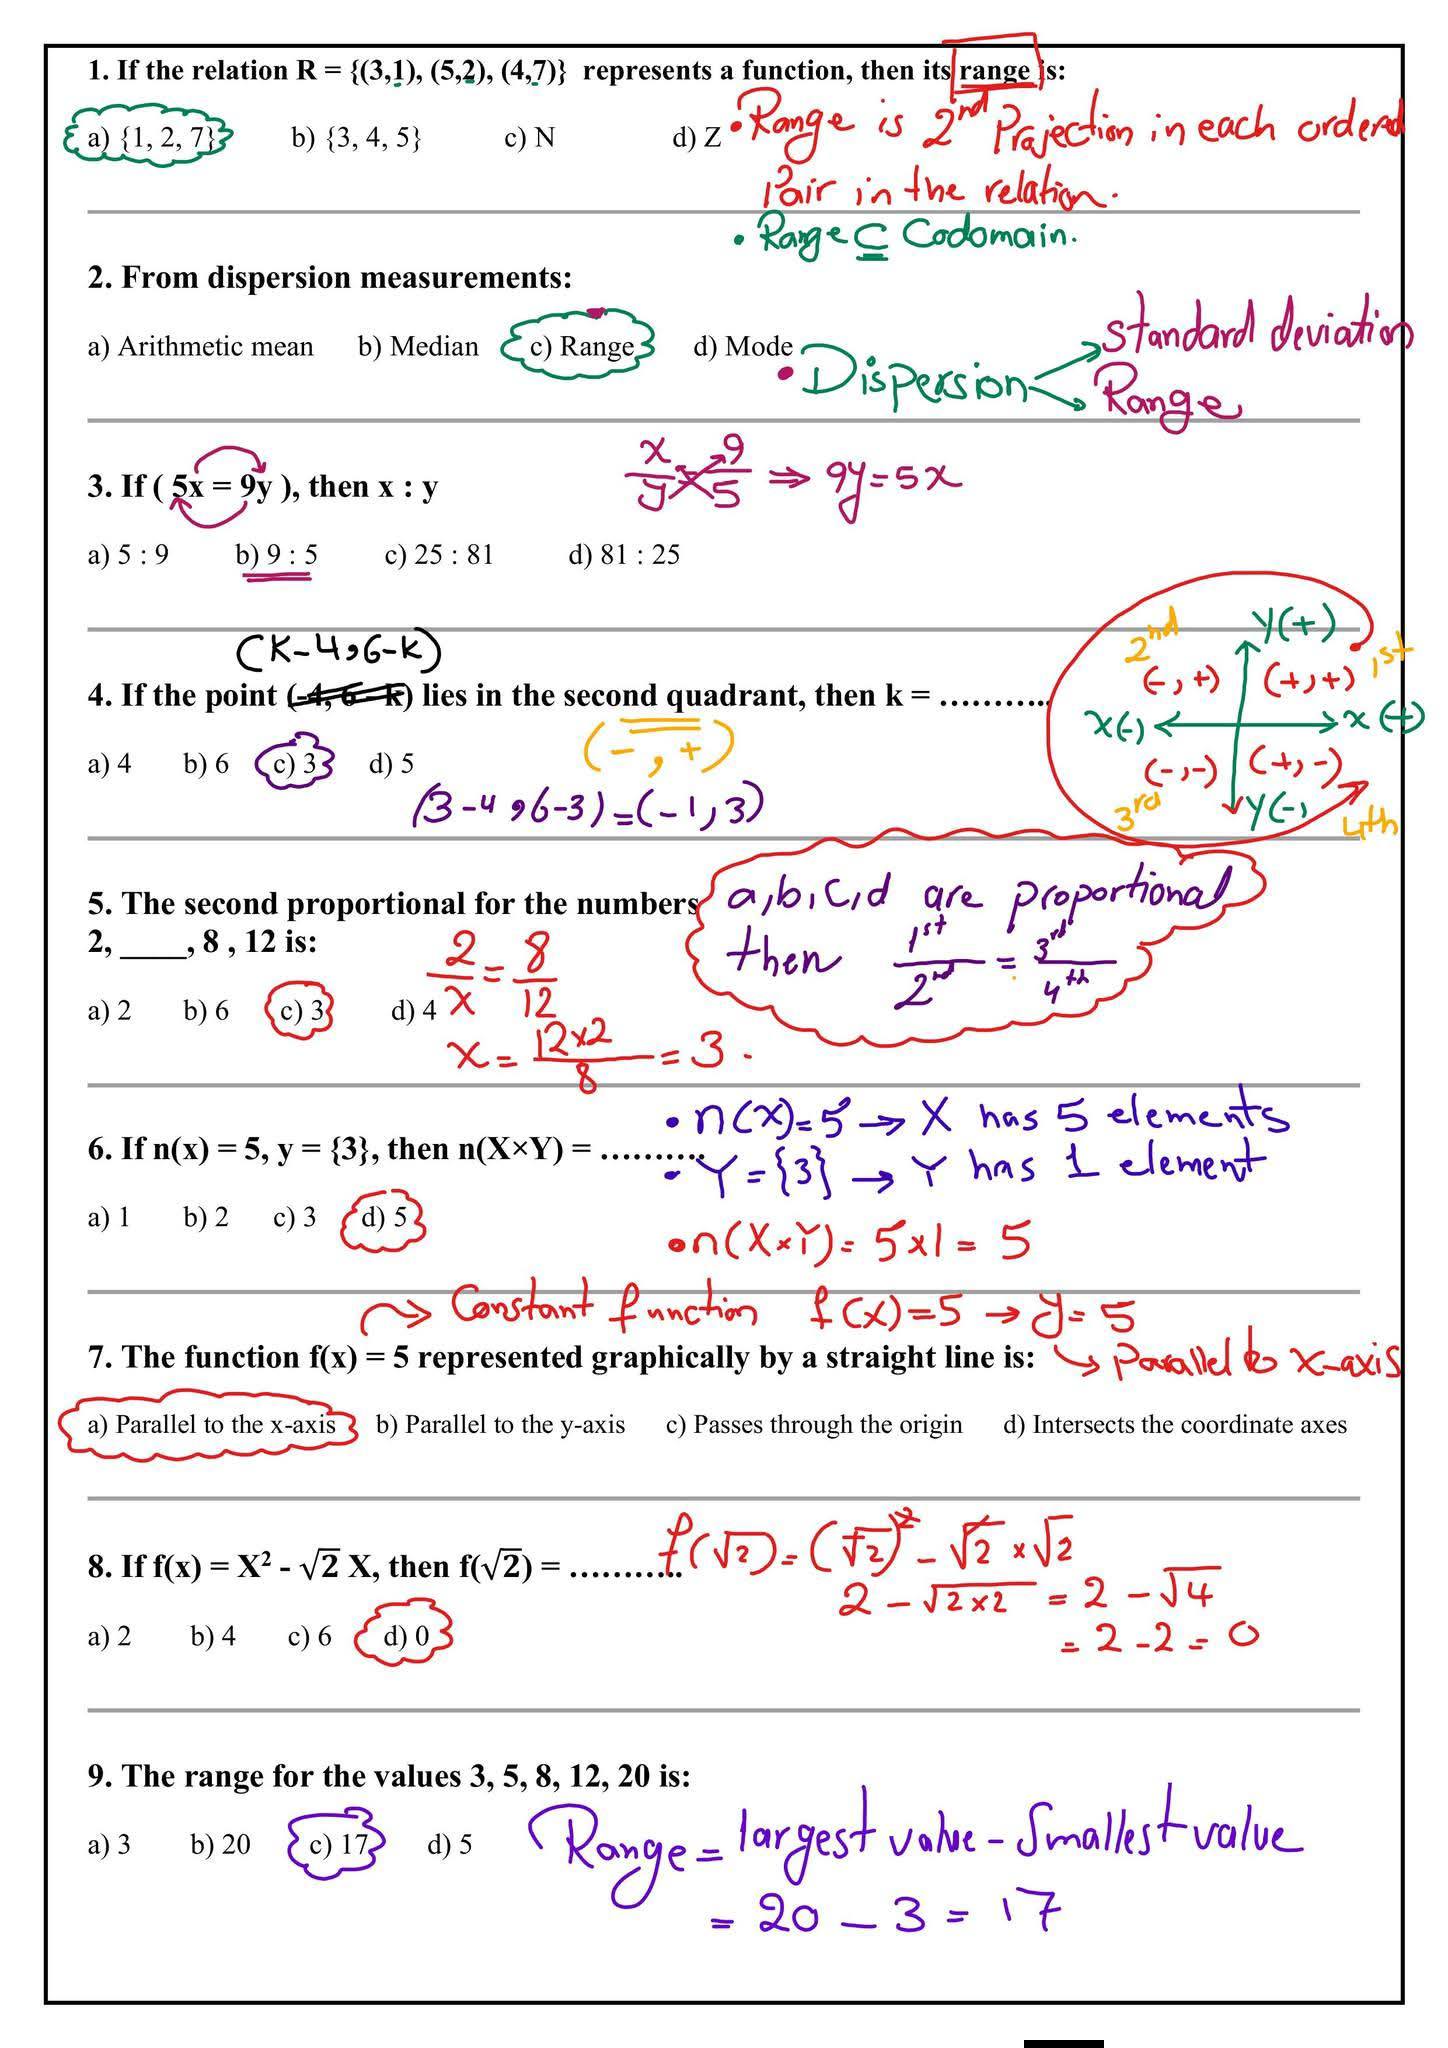 1. If the relation R = {(3,1), (5,2), (4,7)} represents a function, then its range is:
a) {1, 2, 7} b) {3, 4, 5} c) N d) Z
• Range is 2nd Projection in each ordered
Pair in the relation.
• Range ⊆ Codomain.
2. From dispersion measurements:
a) Arithmetic mean b) Median c) Range d) Mode
• Dispersion
Standard deviation
Range
3. If ( 5x = 9y ), then x : y
x/y 9/5 ⇒ 9y = 5x
a) 5 : 9 b) 9 : 5 c) 25 : 81 d) 81 : 25
(K-4, 6-K)
4. If the point (-4, 6 - k) lies in the second quadrant, then k = ………..
a) 4 b) 6 c) 3 d) 5
(-, +)
(3-4, 6-3) = (-1, 3)
2nd y(+) 1st
(-, +) (+, +)
x(-) x(+)
(-, -) (+, -)
3rd y(-) 4th
5. The second proportional for the numbers
2, ____, 8 , 12 is:
a) 2 b) 6 c) 3 d) 4
2/x = 8/12
x = 12×2/8 = 3.
a, b, c, d are proportional
then 1st/2nd = 3rd/4th
6. If n(x) = 5, y = {3}, then n(X×Y) = ……….
a) 1 b) 2 c) 3 d) 5
• n(X) = 5 → X has 5 elements
• Y = {3} → Y has 1 element
• n(X×Y) = 5×1 = 5
→ Constant function f(x) = 5 → y = 5
7. The function f(x) = 5 represented graphically by a straight line is:
→ Parallel to x-axis
a) Parallel to the x-axis b) Parallel to the y-axis c) Passes through the origin d) Intersects the coordinate axes
8. If f(x) = X² - √2 X, then f(√2) = ………..
f(√2) = (√2)² - √2 × √2
2 - √2×2 = 2 - √4
= 2 - 2 = 0
a) 2 b) 4 c) 6 d) 0
9. The range for the values 3, 5, 8, 12, 20 is:
a) 3 b) 20 c) 17 d) 5
Range = largest value - Smallest value
= 20 - 3 = 17